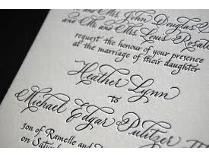 Mr. and Mrs. John Douglas
and Mr. and Mrs. Louis
request the honour of your presence
at the marriage of their daughter
Heather Lynn
to
Michael Edgar Pulitzer III
son of Ramelle and
on Satur